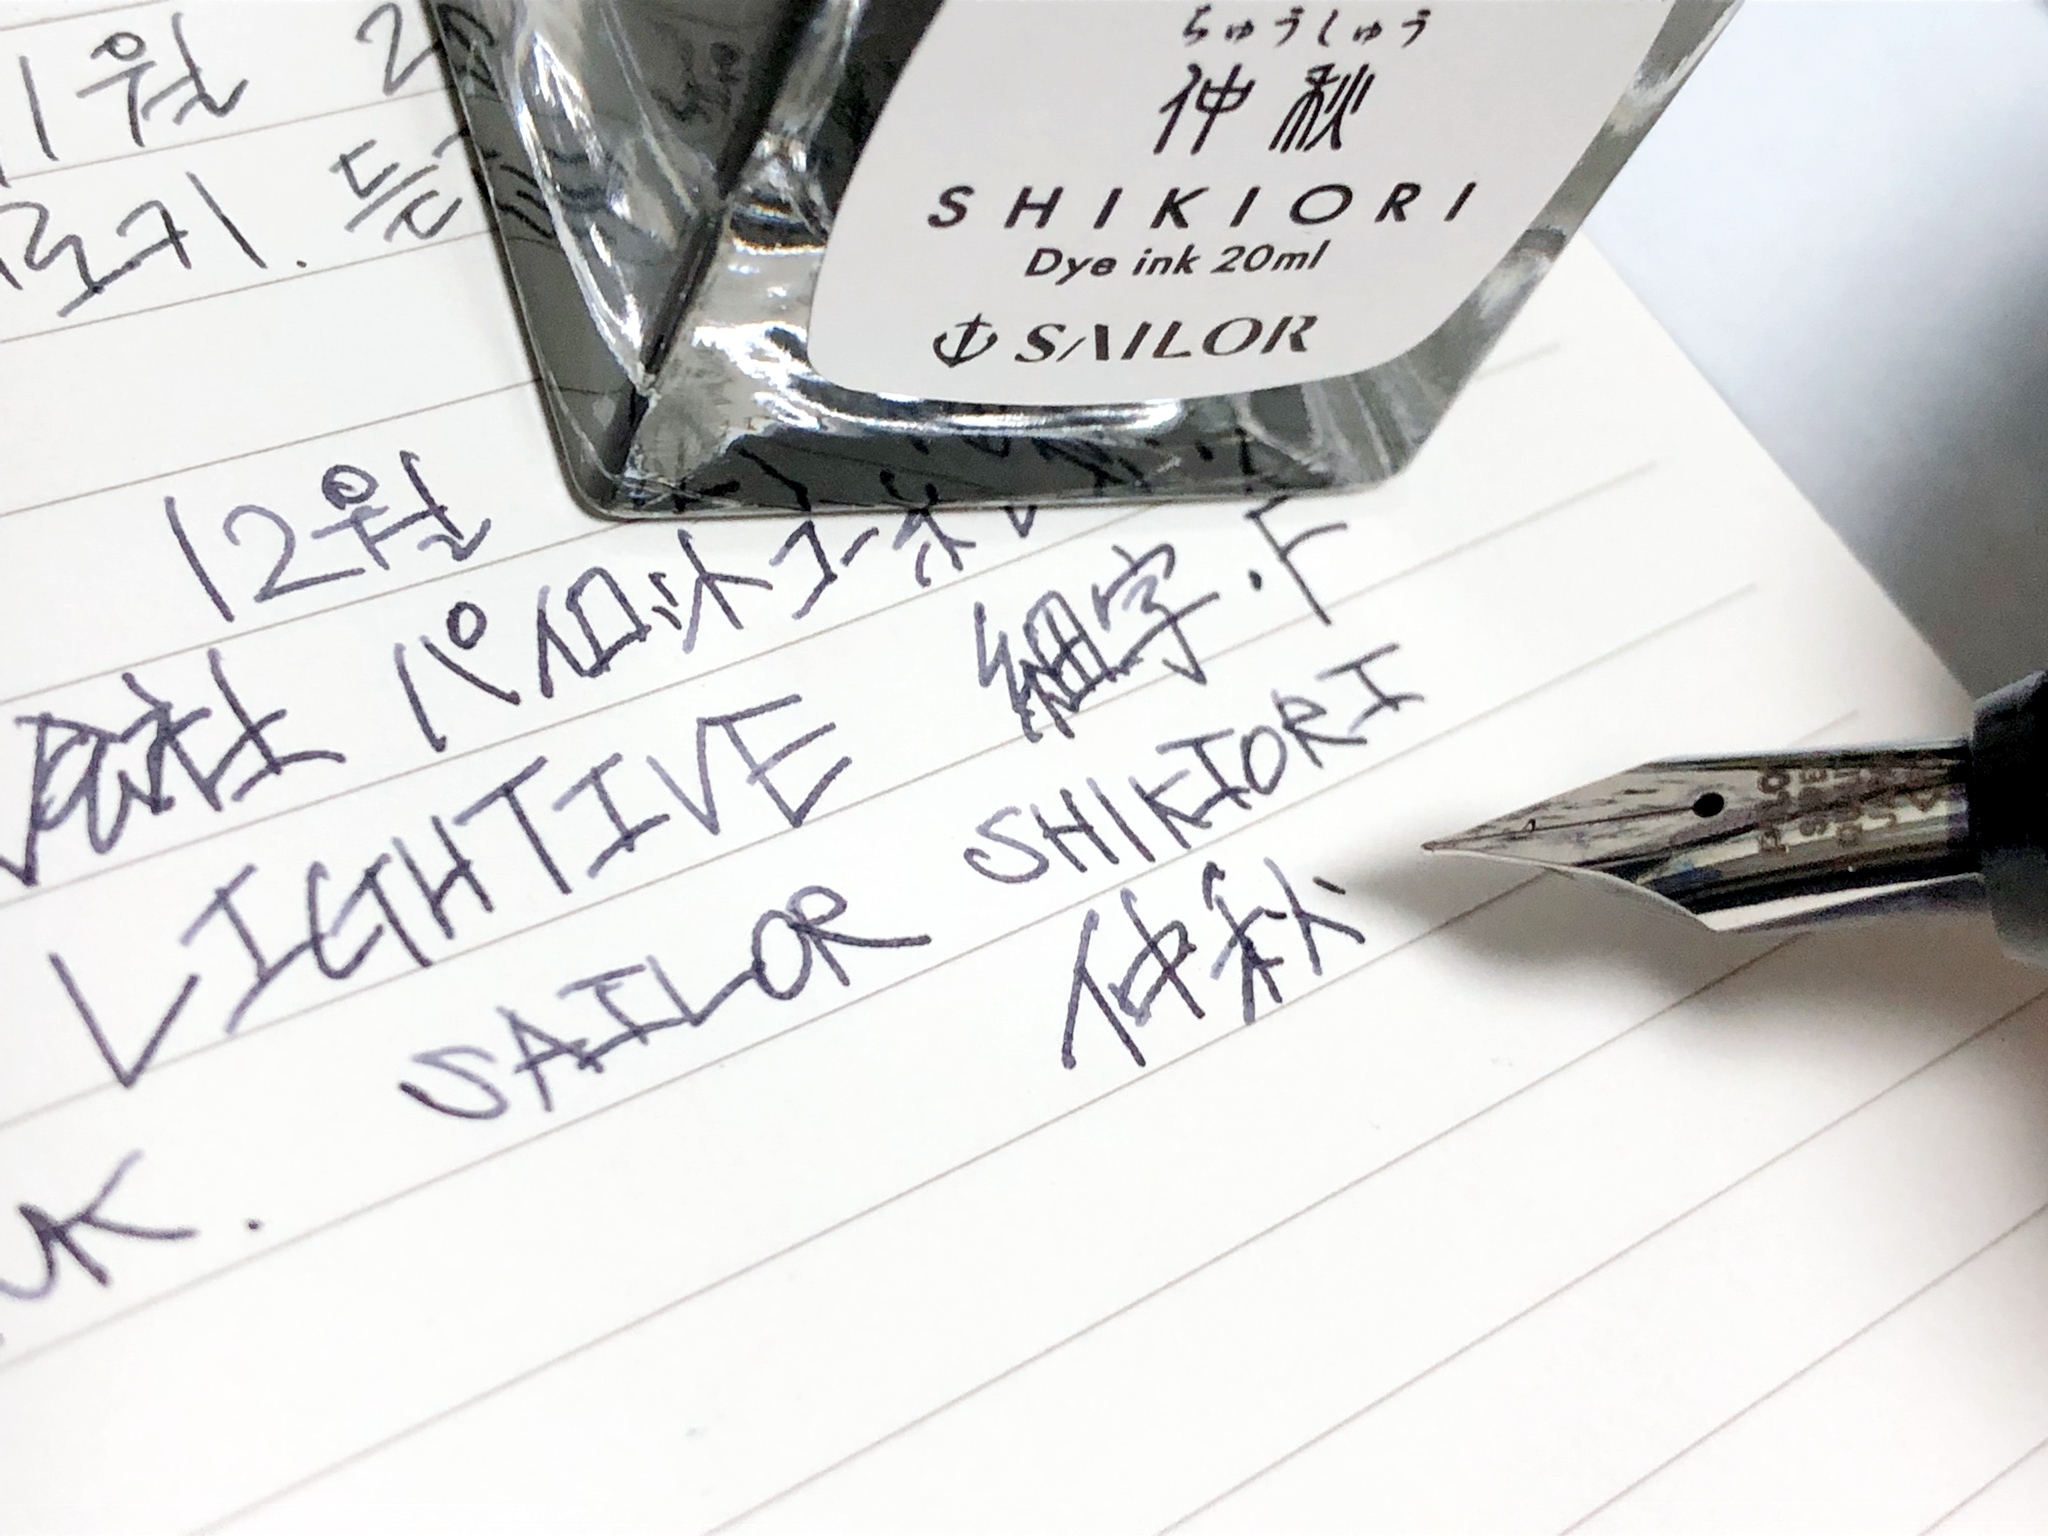 ちゅうしゅう
仲秋
SHIKIORI
Dye ink 20ml
SAILOR
1월 2
기. 듣
12월
会社 パイロットコーポ
LIGHTIVE 細字.F
SAILOR SHIKIORI
仲秋
UK.